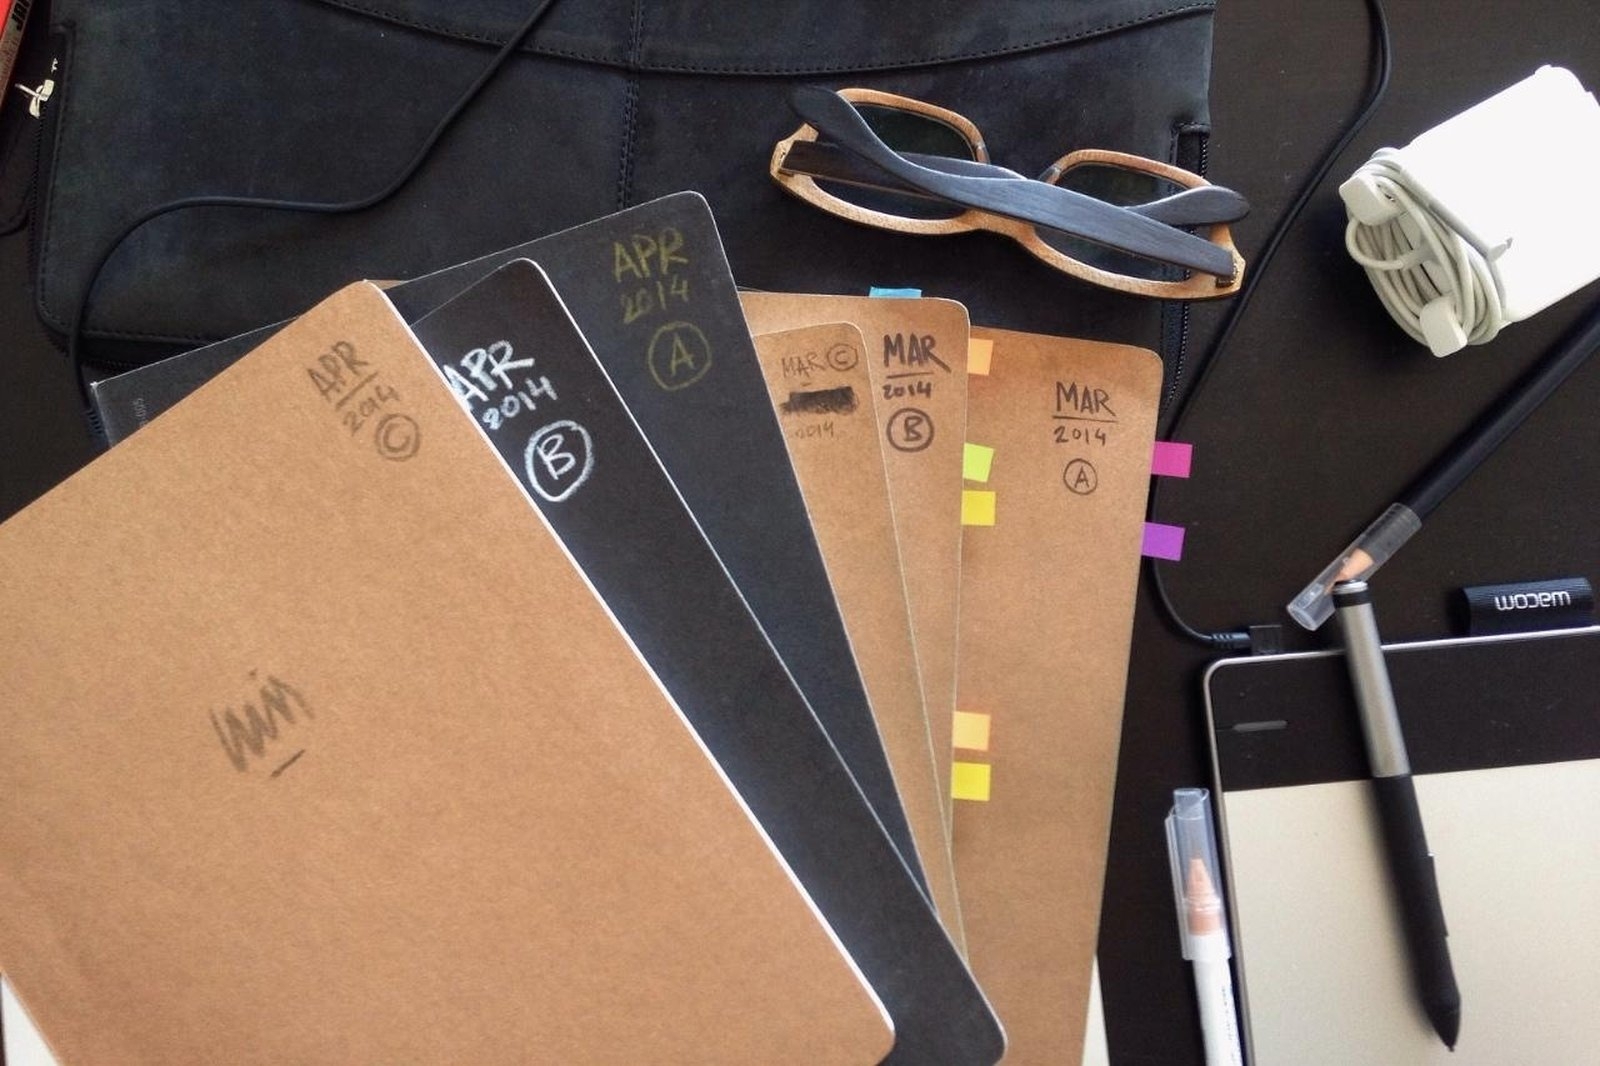 APR
2014
C
APR
2014
B
APR
2014
A
MAR C
2014
MAR
2014
B
MAR
2014
A
wacom